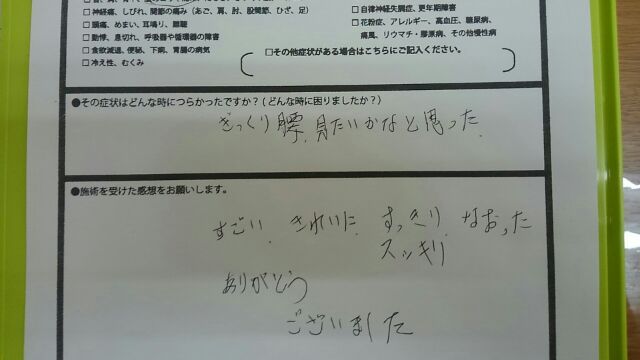 □神経痛、しびれ、関節の痛み（あご、肩、肘、股関節、ひざ、足）
□頭痛、めまい、耳鳴り、難聴
□動悸、息切れ、呼吸器や循環器の障害
□食欲減退、便秘、下痢、胃腸の病気
□冷え性、むくみ
□自律神経失調症、更年期障害
□花粉症、アレルギー、高血圧、糖尿病、
痛風、リウマチ・膠原病、その他慢性病
□その他症状がある場合はこちらにご記入ください。
●その症状はどんな時につらかったですか？（どんな時に困りましたか？）
ぎっくり腰、みたいかなと思った、
●施術を受けた感想をお願いします。
すごい、きれいに、すっきり、なおった
スッキリ
ありがとう
ございました